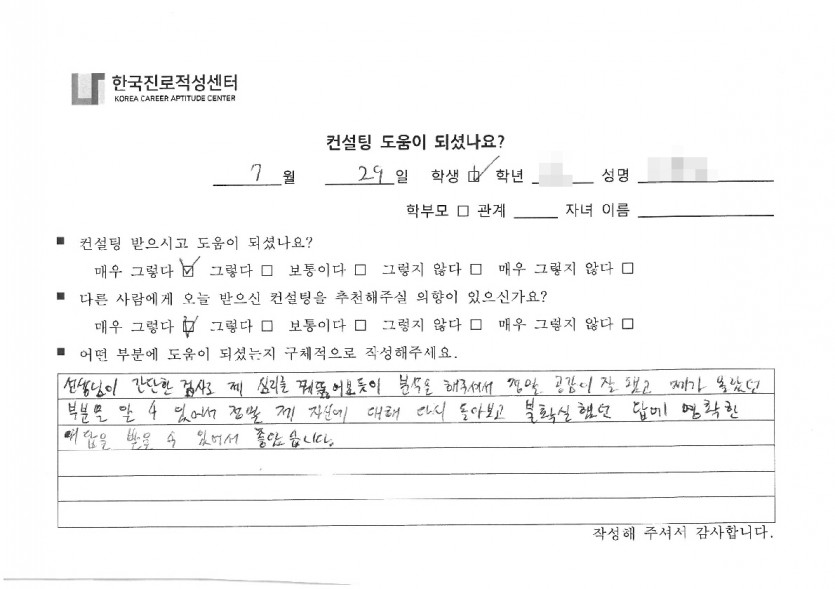 한국진로적성센터
KOREA CAREER APTITUDE CENTER
컨설팅 도움이 되셨나요?
7 월 29 일 학생 ☑ 학년 성명
학부모 □ 관계 자녀 이름
■ 컨설팅 받으시고 도움이 되셨나요?
매우 그렇다 ☑ 그렇다 □ 보통이다 □ 그렇지 않다 □ 매우 그렇지 않다 □
■ 다른 사람에게 오늘 받으신 컨설팅을 추천해주실 의향이 있으신가요?
매우 그렇다 ☑ 그렇다 □ 보통이다 □ 그렇지 않다 □ 매우 그렇지 않다 □
■ 어떤 부분에 도움이 되셨는지 구체적으로 작성해주세요.
선생님이 간단한 검사로 제 심리를 꿰뚫어보듯이 분석을 해주셔서 정말 공감이 잘 됐고 제가 몰랐던
부분을 알 수 있어서 정말 제 자신에 대해 다시 돌아보고 불확실했던 답에 명확한
대답을 받을 수 있어서 좋았습니다.
작성해 주셔서 감사합니다.